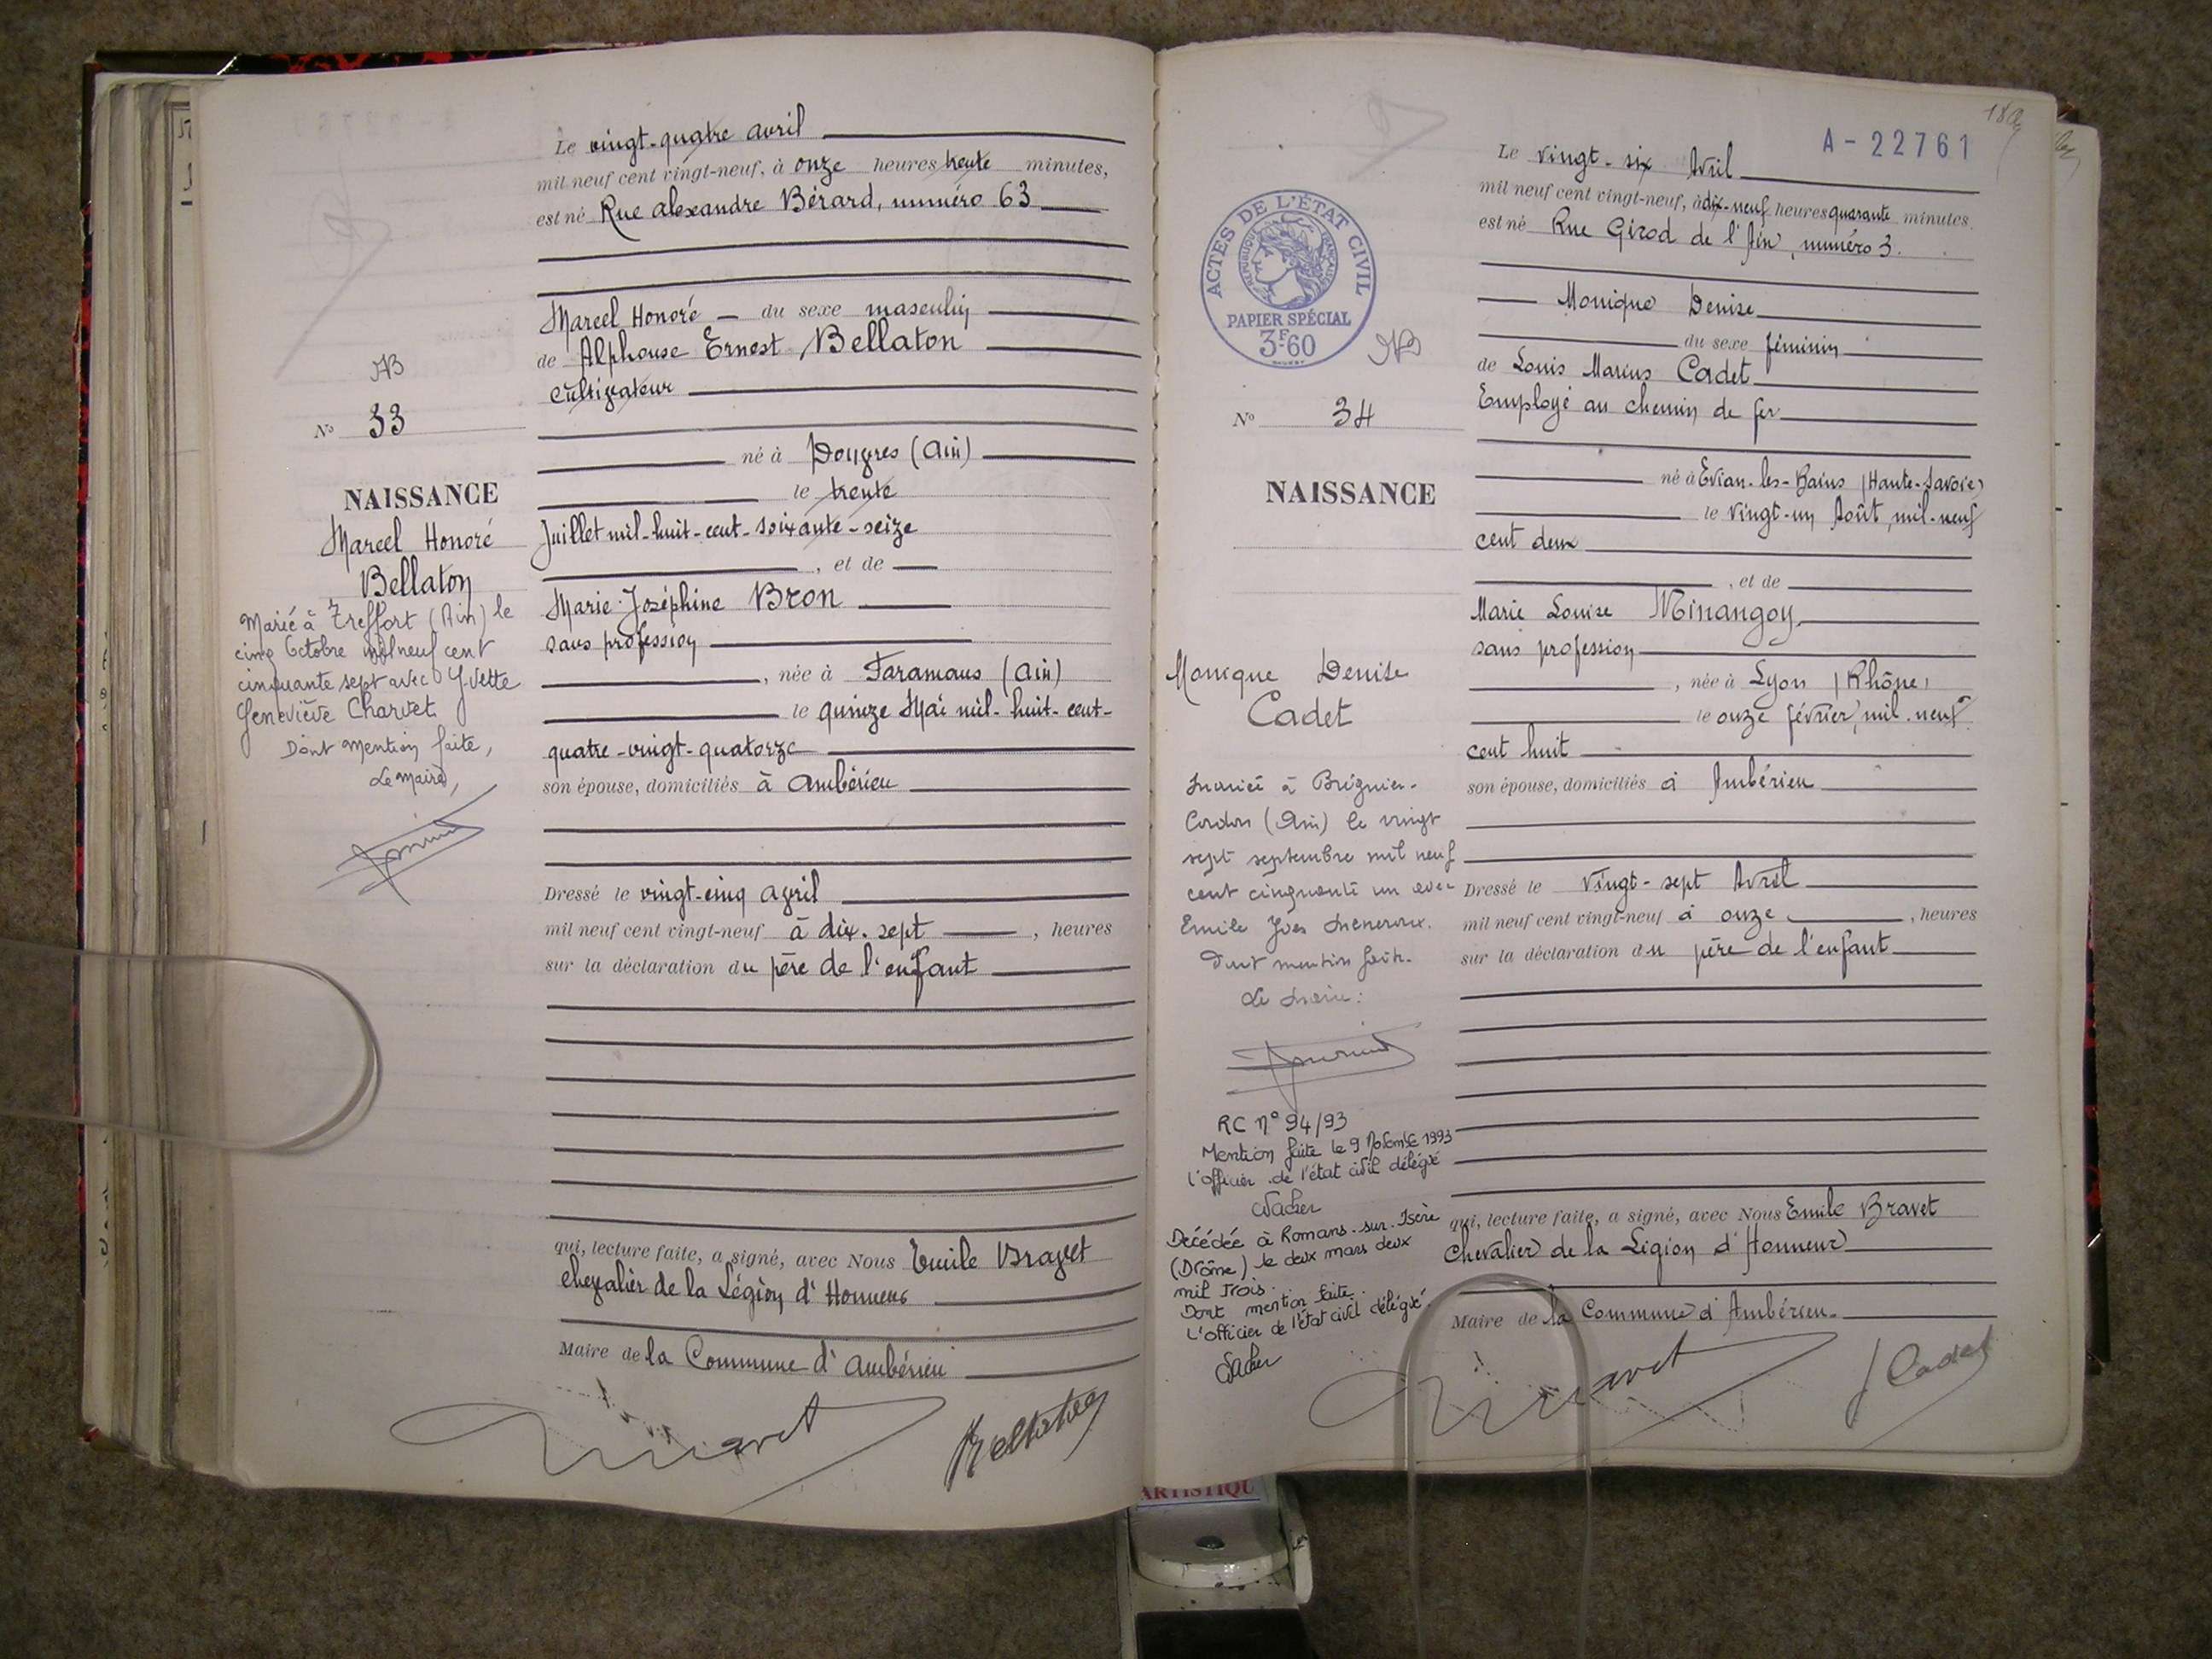 Le vingt-quatre avril
mil neuf cent vingt-neuf, à onze heures trente minutes,
est né Rue alexandre Bérard, numéro 63
Marcel Honoré du sexe masculin
de Alphonse Ernest Bellaton
cultivateur
né à Douvres (Ain)
le trente
Juillet mil-huit-cent-soixante-seize
, et de
Marie-Joséphine Bron
sans profession
, née à Faramans (Ain)
le quinze Mai mil-huit-cent-
quatre-vingt-quatorze
son épouse, domiciliés à Ambérieu
Dressé le vingt-cinq avril
mil neuf cent vingt-neuf à dix-sept , heures
sur la déclaration du père de l'enfant
qui, lecture faite, a signé, avec Nous Emile Bravet
chevalier de la Légion d'Honneur
Maire de la Commune d'Ambérieu
Bravet
Bellaton
AB
No 33
NAISSANCE
Marcel Honoré
Bellaton
Marié à Treffort (Ain) le
cinq Octobre mil neuf cent
cinquante sept avec Yvette
Geneviève Charvet.
Dont mention faite,
Le Maire,
A-22761
Le vingt-six Avril
mil neuf cent vingt-neuf, à dix-neuf heures quarante minutes
est né Rue Girod de l'Ain, numéro 3.
Monique Denise
du sexe féminin
de Louis Marius Cadet
Employé au chemin de fer
né à Evian-les-Bains (Haute-Savoie)
le vingt-un Août, mil-neuf
cent deux
, et de
Marie Louise Minangoy
sans profession
, née à Lyon (Rhône)
le onze février, mil-neuf
cent huit
son épouse, domiciliés à Ambérieu
Dressé le vingt-sept Avril
mil neuf cent vingt-neuf à onze , heures
sur la déclaration du père de l'enfant
qui, lecture faite, a signé, avec Nous Emile Bravet
Chevalier de la Légion d'Honneur
Maire de la Commune d'Ambérieu.
Bravet
Cadet
ACTES DE L'ÉTAT CIVIL
RÉPUBLIQUE FRANÇAISE
PAPIER SPÉCIAL
3F60
No 34
NAISSANCE
Monique Denise
Cadet
Mariée à Brégnier-
Cordon (Ain) le vingt
sept septembre mil neuf
cent cinquante un avec
Emile Yves
Dont mention faite.
Le Maire:
RC N° 94/93
Mention faite le 9 Novembre 1993
L'officier de l'état civil délégué
Décédée à Romans-sur-Isère
(Drôme) le deux mars deux
mil trois.
Dont mention faite.
L'officier de l'état civil délégué.
ARTISTIQU